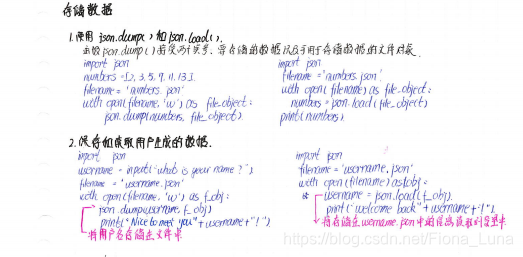 存储数据
1. 使用 json.dump() 和 json.load().
函数json.dump()接受两个实参：要存储的数据以及可用于存储数据的文件对象.
import json
numbers=[2,3,5,7,11,13].
filename='numbers.json'
with open(filename,'w') as file_object:
json.dump(numbers, file_object)
import json
filename='numbers.json'
with open(filename) as file_object:
numbers=json.load(file_object)
print(numbers)
2. 保存和读取用户生成的数据.
import json
username=input("what is your name?").
filename='username.json'
with open(filename,'w') as f_obj:
json.dump(username, f_obj)
print("Nice to meet you"+username+"!")
将用户名存储在文件中
import json
filename='username.json'
with open(filename) as f_obj:
username=json.load(f_obj).
print("Welcome back"+username+"!").
将存储在username.json中的信息读取到变量中
https://blog.csdn.net/Fiona_Luna